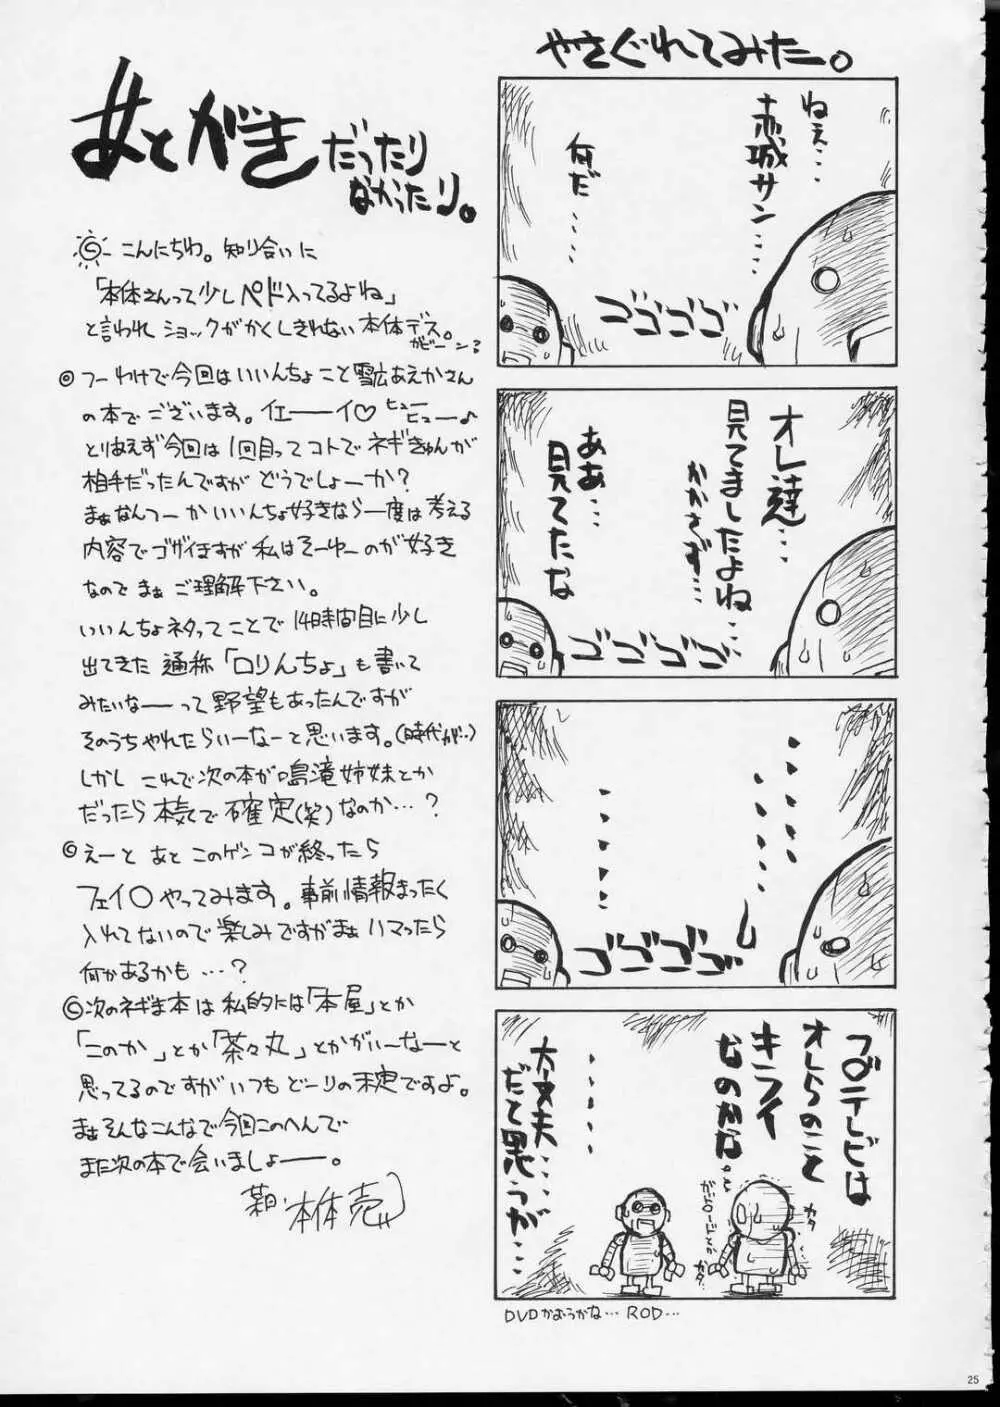 あとがき だったり
なかったり。
こんにちわ。知り合いに
「本体さんって少しペド入ってるよね」
と言われ ショックがかくしきれない本体デス。
ガビーン?
つーわけで今回はいいんちょこと雪広あえかさん
の本でございます。イエーーイ♡ ヒューヒュー♪
とりあえず今回は1回目ってコトでネギきゅんが
相手だったんですが どうでしょーか?
まぁなんつーか いいんちょ好きなら一度は考える
内容でゴザイますが 私はそーゆーのが好き
なので まぁ ご理解下さい。
いいんちょネタってことで 14時間目に少し
出てきた 通称「ロリんちょ」も書いて
みたいなーーって野望もあったんですが
そのうちやれたらいーなーと思います。(時代が…)
しかし これで次の本が鳴滝姉妹とか
だったら本気で確定(笑)なのか…?
えーと あと このゲンコが終ったら
フェイ〇やってみます。事前情報まったく
入れてないので楽しみですがまぁハマったら
何かあるかも…?
次のネギま本は私的には「本屋」とか
「このか」とか「茶々丸」とかがいーなーと
思ってるのですがいつもどーりの未定ですよ。
まぁそんなこんなで今回このへんで
また次の本で会いましょーー。
本体売
やさぐれてみた。
ねえ…
赤城サン…
何だ…
ゴゴゴゴ
オレ達…
見てましたよね…
かかさず…
ああ…
見てたな
ゴゴゴゴ
ゴゴゴゴ
フ〇テレビは
オレらのこと
キライ
なのかな。
ガ〇ードとか
カタ
カタ
大丈夫…
だと思うが…
DVDかおうかな… ROD…
25